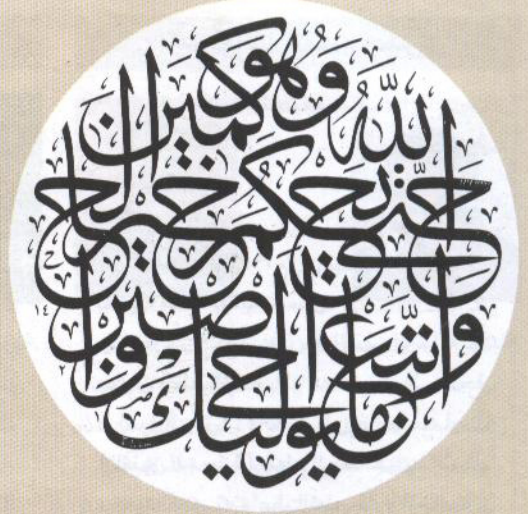 واتبع ما يوحى إليك واصبر
حتى يحكم
الله وهو
خير الحاكمين